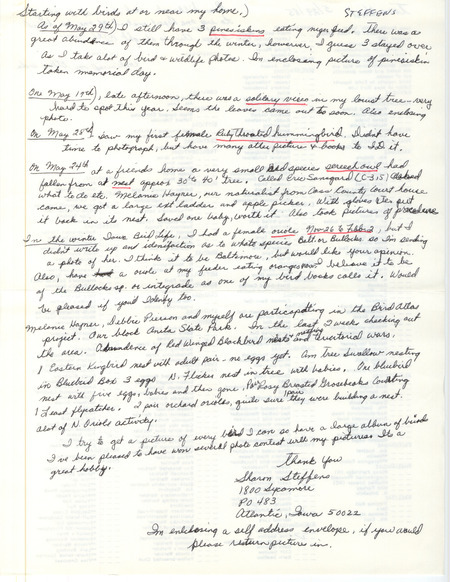 Starting with birds at or near my home.)
STEFFENS
As of May 29th) I still have 3 pinesiskins eating my feed. There was a
great abundance of them through the winter, however, I guess 3 stayed over
As I take alot of bird & wildlife photos. Im enclosing picture of pinesiskin
taken memorial day.
On May 19th), late afternoon, there was a solitary vireo in my locust tree - very
hard to spot this year. Seems the leaves came out to soon. Also enclosing
photo.
On May 25th saw my first female Ruby throated hummingbird. Didnt have
time to photograph, but have many other picture & books to I.D it.
On May 24th at a friends home a very small bird species screech owl had
fallen from at nest approx 30' to 40' tree. Called Eric
what to do etc. Melanie Hayner, our naturalist from Cass County Court house
came, we got a large ext ladder and apple picker. With gloves
it back in its nest. Saved one baby, worth it. Also took pictures of procedure
In the winter Iowa Bird Life, I had a female oriole Nov 26 to Feb 2, but I
didn't write up any idenifaction as to whats species Balt. or Bullocks. so Im sending
a photo of her. I think it to be Baltemore, but would like your opinion.
Also, have a oriole at my feeder eating oranges now I believe it to be
of the Bullocks sp. or intergrade as one of my bird books calls it. Would
be pleased if you'd Idenify too.
Melanie Hayner, Debbie Pierson and myself are participating in the Bird Atlas
project. Our block Anita State Park. In the last 2 week checking out
the area. Abundence of Red Winged Blackbird nests and nesting territorial wars.
1 Eastern Kingbird nest with adult pair - no eggs yet. Am tree Swallow nesting
in Bluebird Box 3 eggs. N. Flicker nest in tree with babies. One bluebird
nest with five eggs, babies and then gone, Rosy Breasted Grosbeaks Courting
1 Least flycatcher. 2 pair orchard orioles, quite sure 1 pair they were building a nest.
alot of N. Oriole activity.
I try to get a picture of every bird I can so have a large album of birds
I've been pleased to have won several photo contest with my pictures. Its a
great hobby.
Thank You
Sharon Steffens
1800 Sycamore
PO 483
Atlantic, Iowa 50022
Im enclosing a self address envelope, if you would
please return picture in.